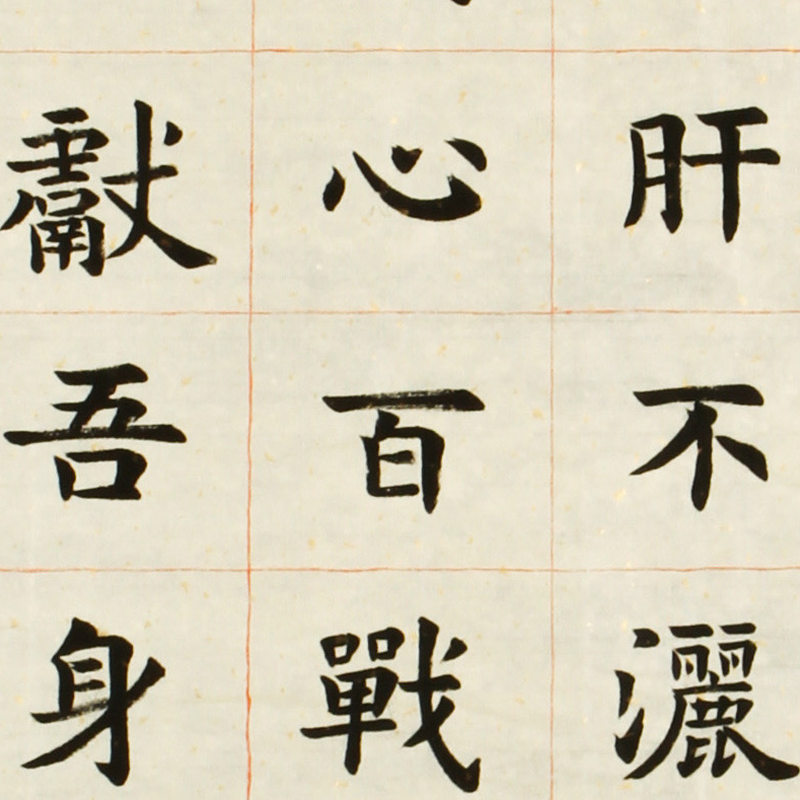 肝不灑
心百戰
獻吾身